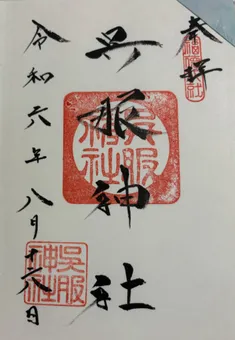 奉拝
呉服神社
呉服神社
令和六年八月十六日
呉服神社